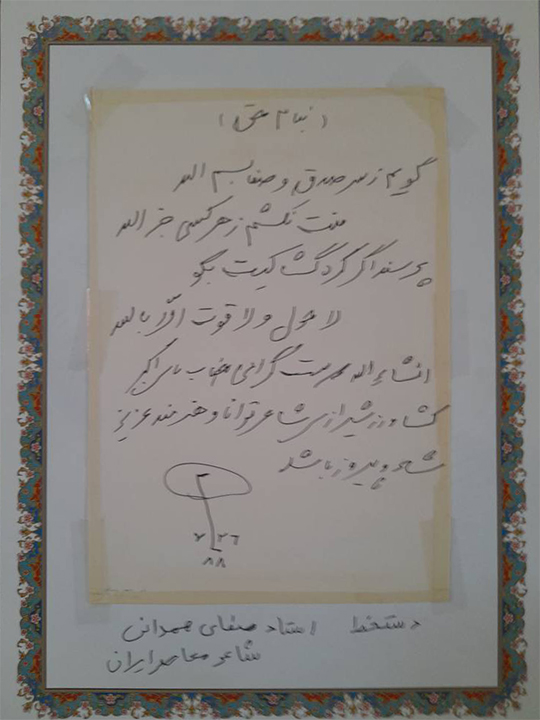 ( بنام حق )
گویم ز سر صدق و صفا بسم الله
منت نکشم ز هر کسی جز الله
پرسند اگر گره گشا کیست بگو
لا حول و لا قوت الا بالله
انشاء الله دوست گرامی جناب آقای اکبر
کشاورز شیرازی شاعر توانا و هنرمند عزیز
شاد و پیروز باشد
۲۶ ۷
۸۸
دستخط استاد صفای همدانی
شاعر معاصر ایران